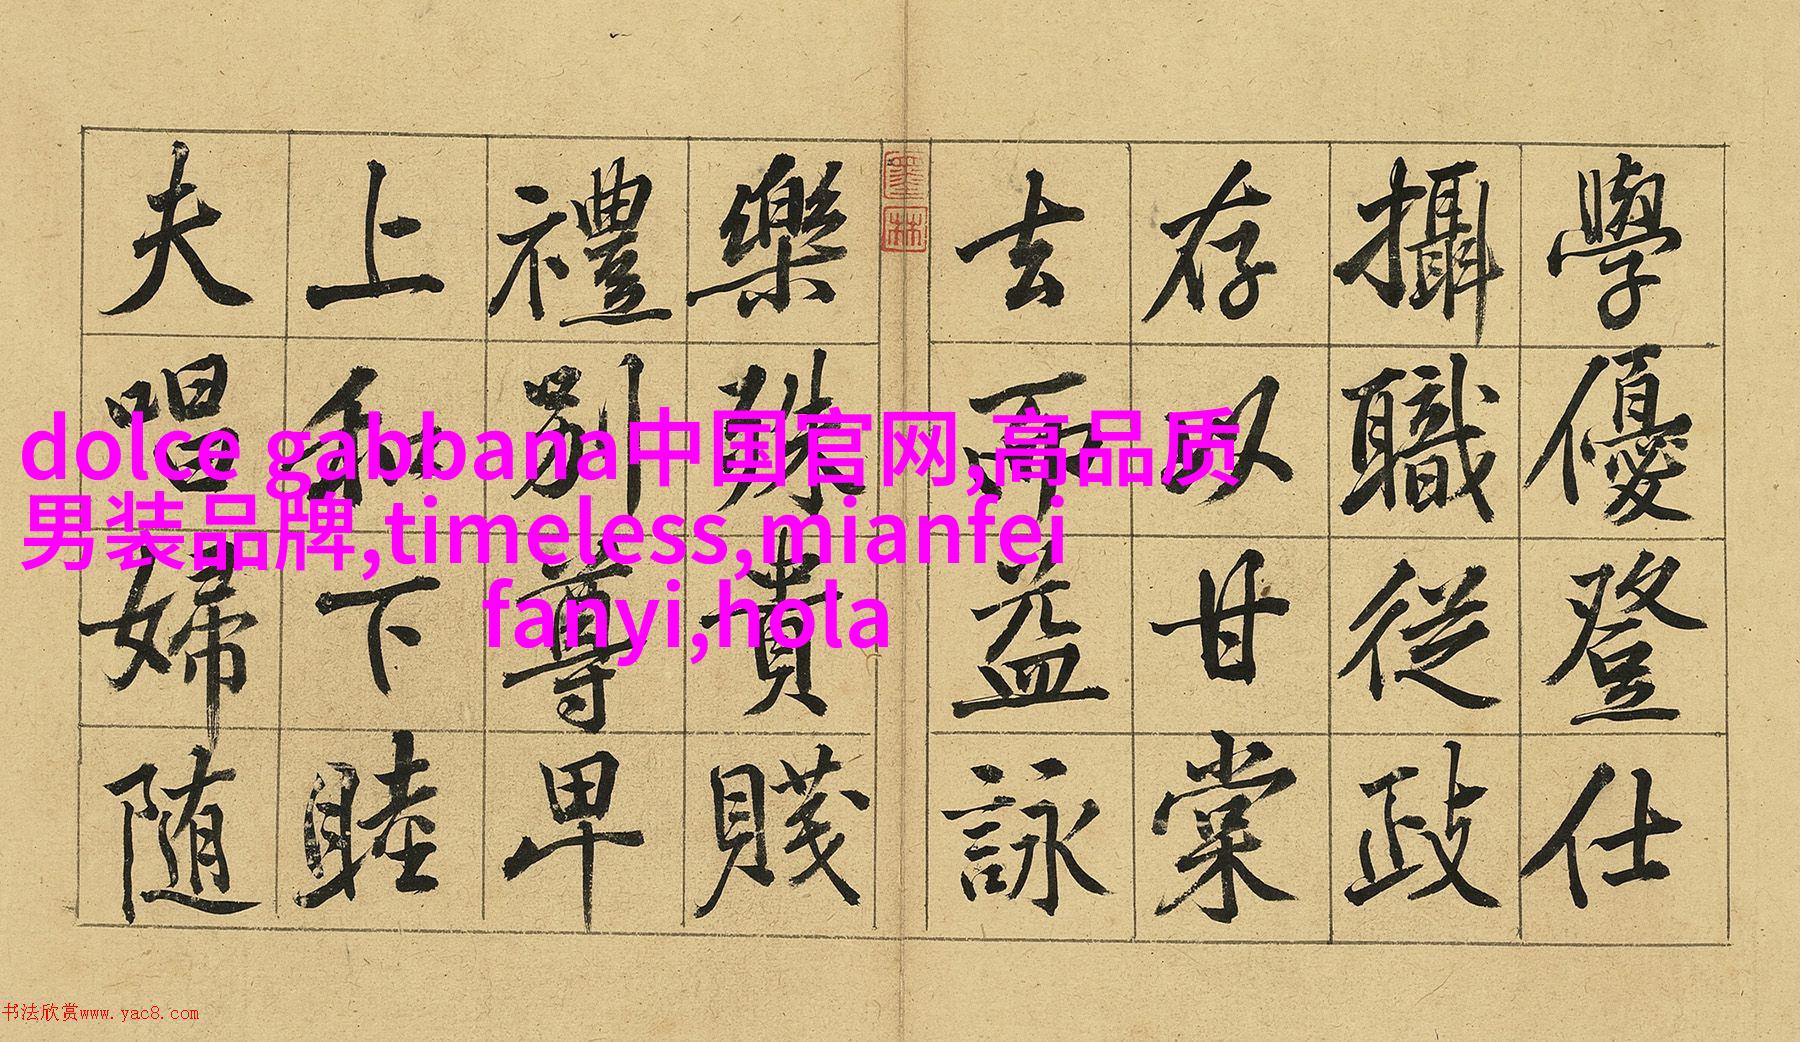 學優登仕
攝職從政
存以甘棠
去而益詠
墨林
樂殊貴賤
禮別尊卑
上和下睦
夫唱婦随
dolce gabbana中国官网,高品质
男装品牌,timeless,mianfei
fanyi,hola
书法欣赏www.yac8.com